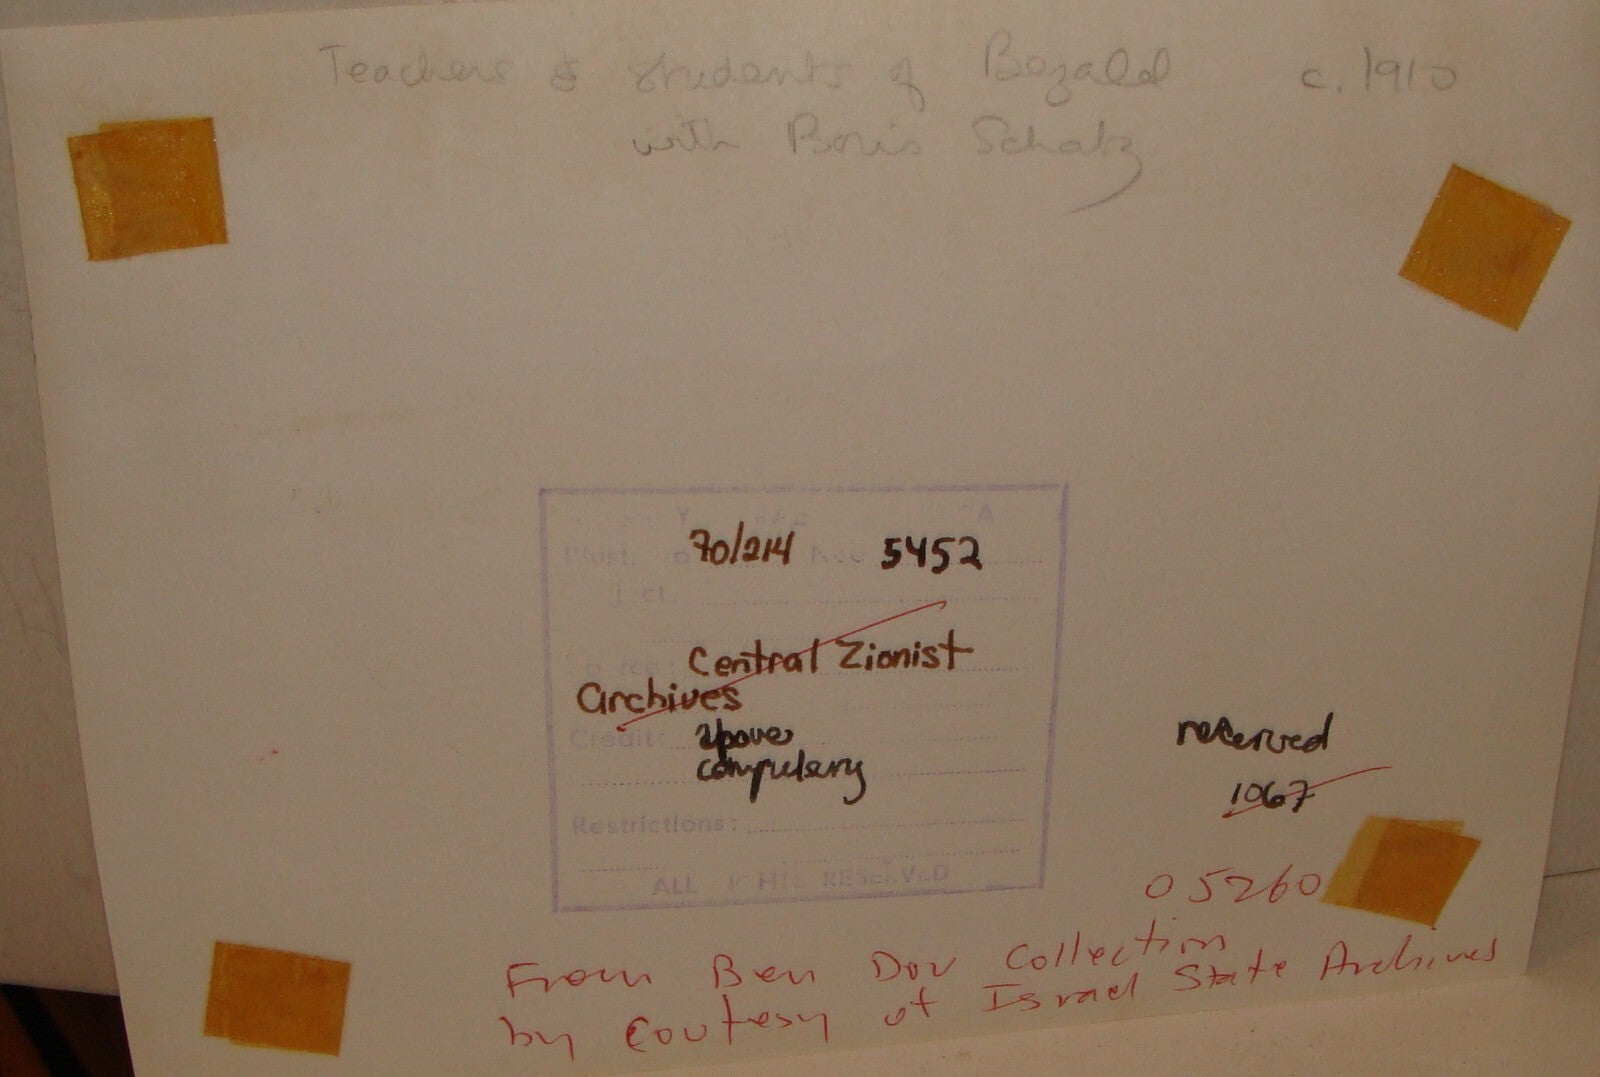 Teachers & students of Bezalel c. 1910
with Boris Schatz
Illust.
70/214 5452
Central Zionist
Archives
Credit: above
compulsory
Restrictions:
ALL RESERVED
reserved
1067
05260
From Ben Dov Collection
by Coutesy of Israel State Archives